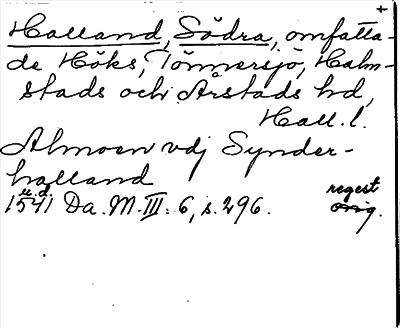 +
Halland, Södra, omfatta-
de Höks, Tönnersjö, Halm-
stads och Årstads hd,
Hall. l.
Almoen vdj Synder-
halland
u.d. regest
1541 Da. M. III: 6, s. 296. orig.